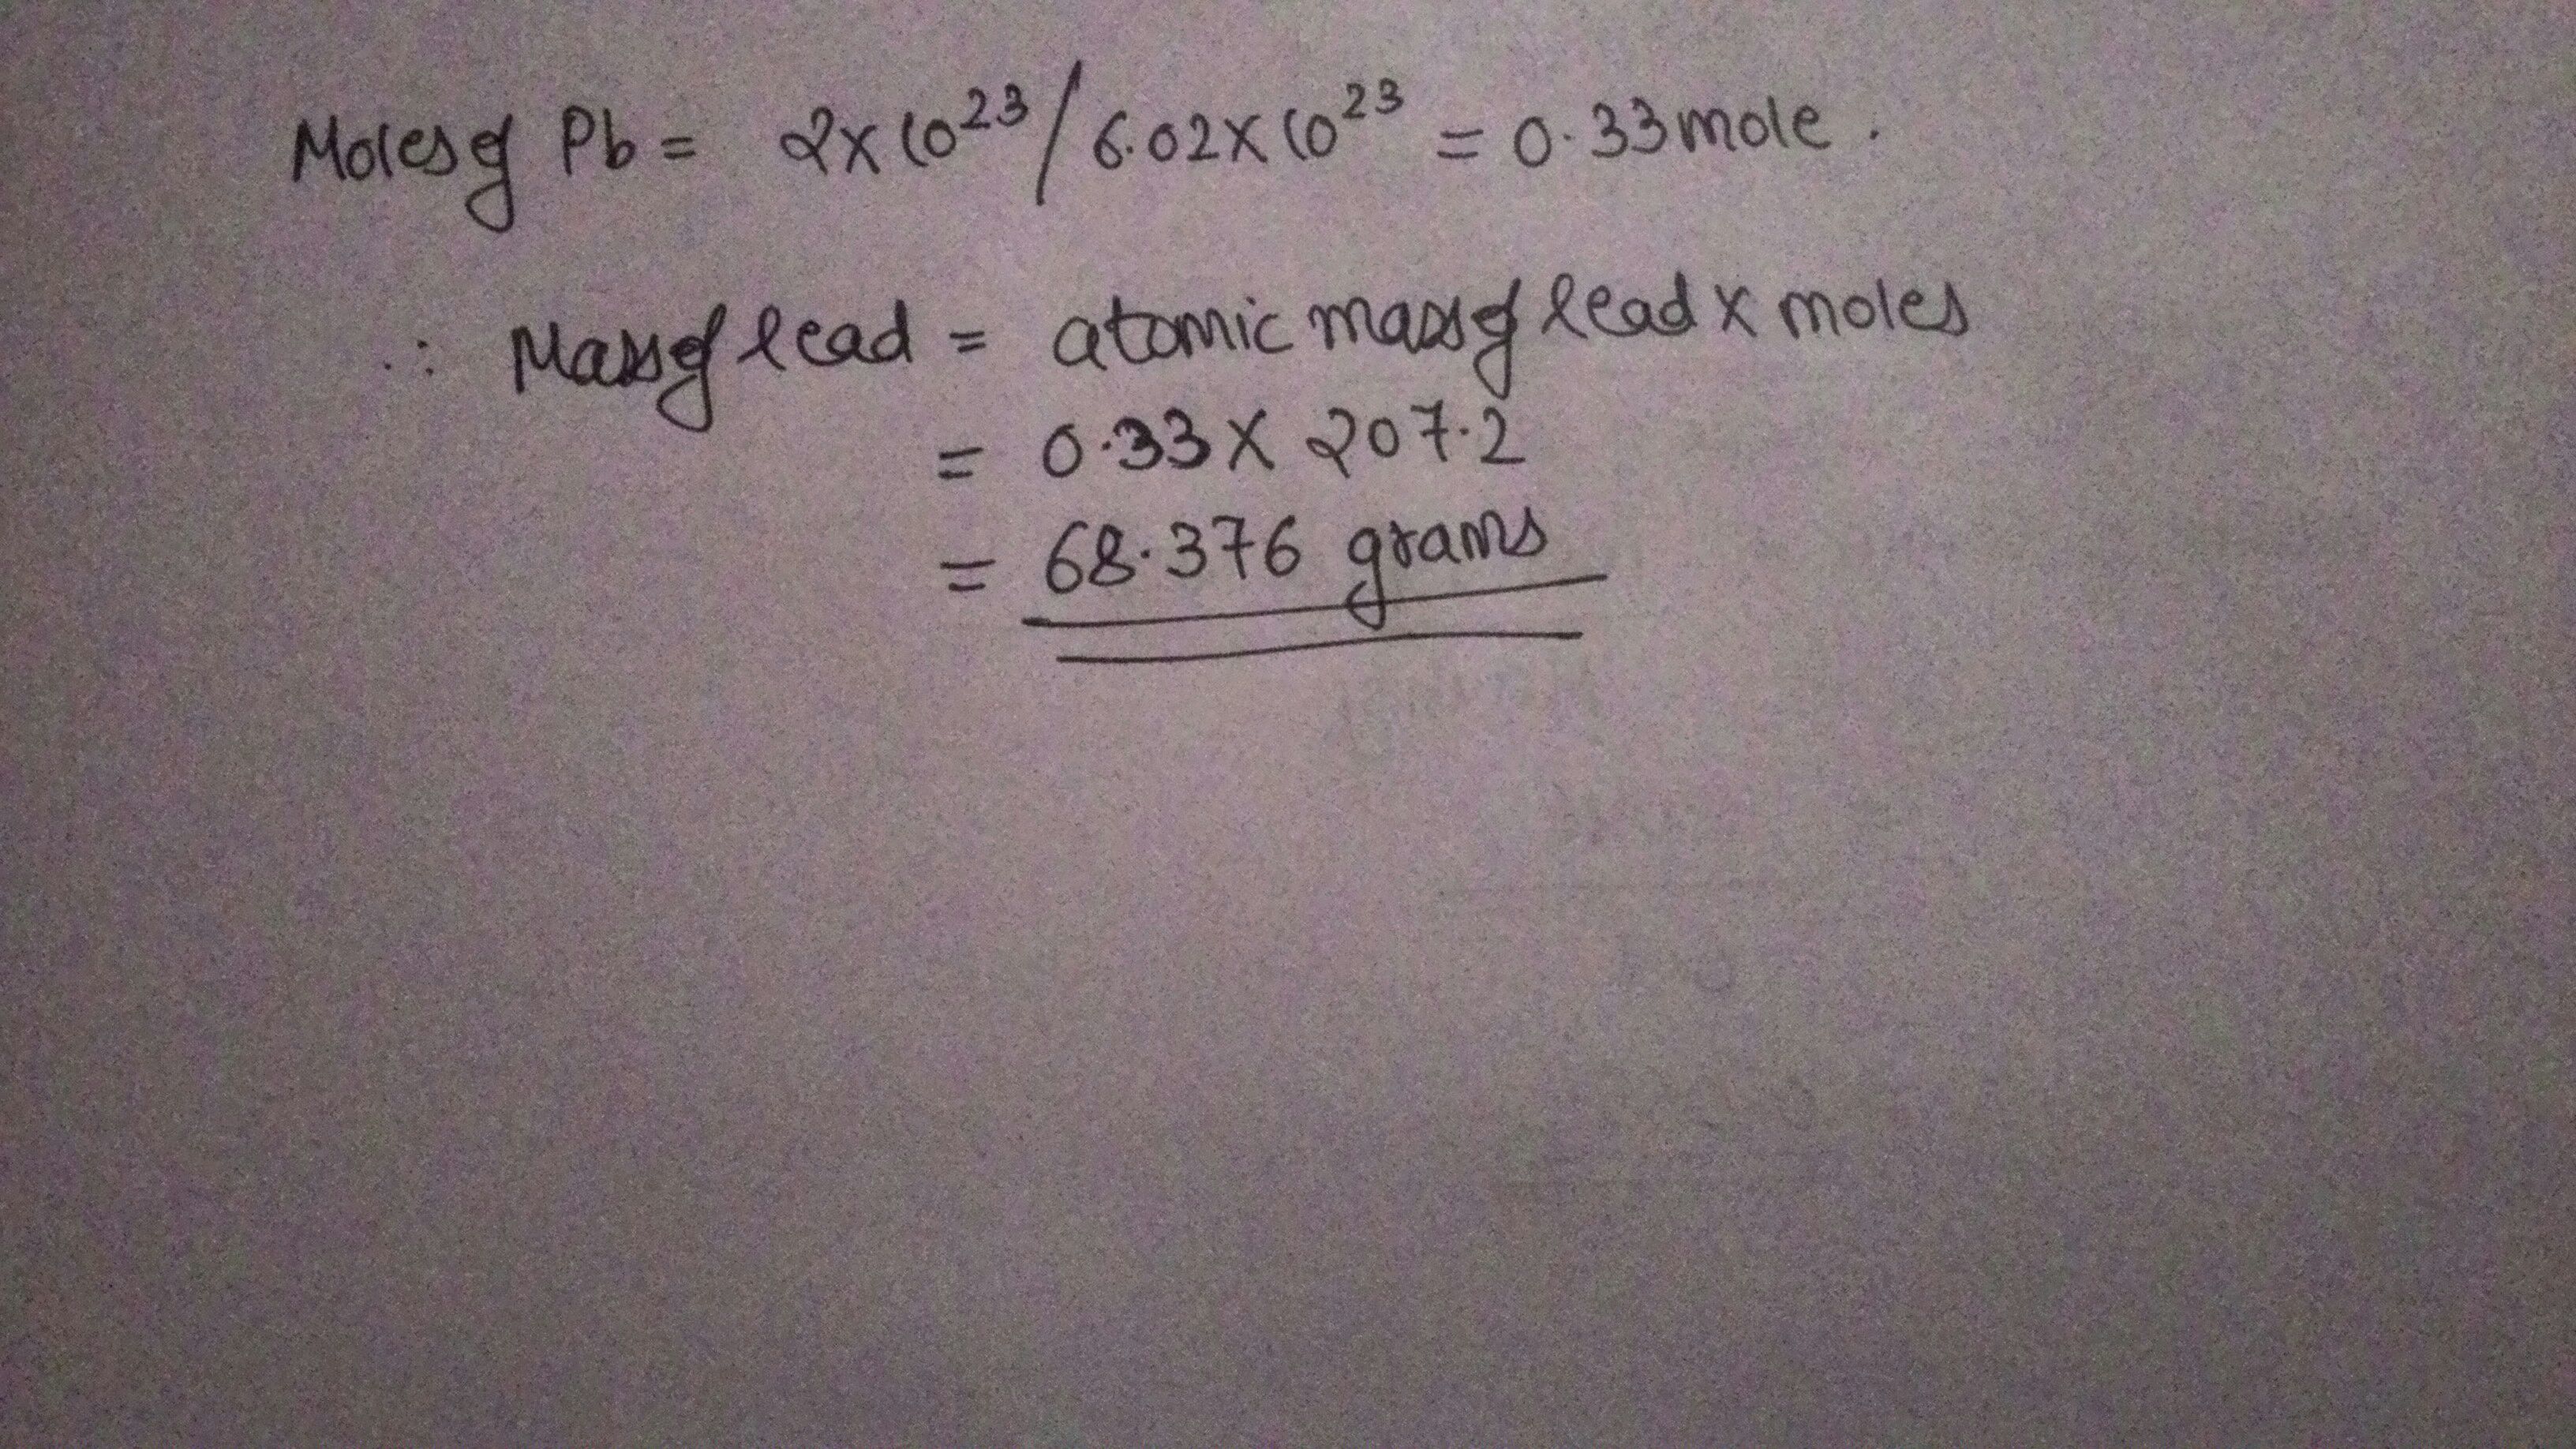 Moles of Pb = 2x10²³/6.02x10²³ = 0.33mole.
∴ Mass of lead = atomic mass of lead x moles
= 0.33 x 207.2
= 68.376 grams